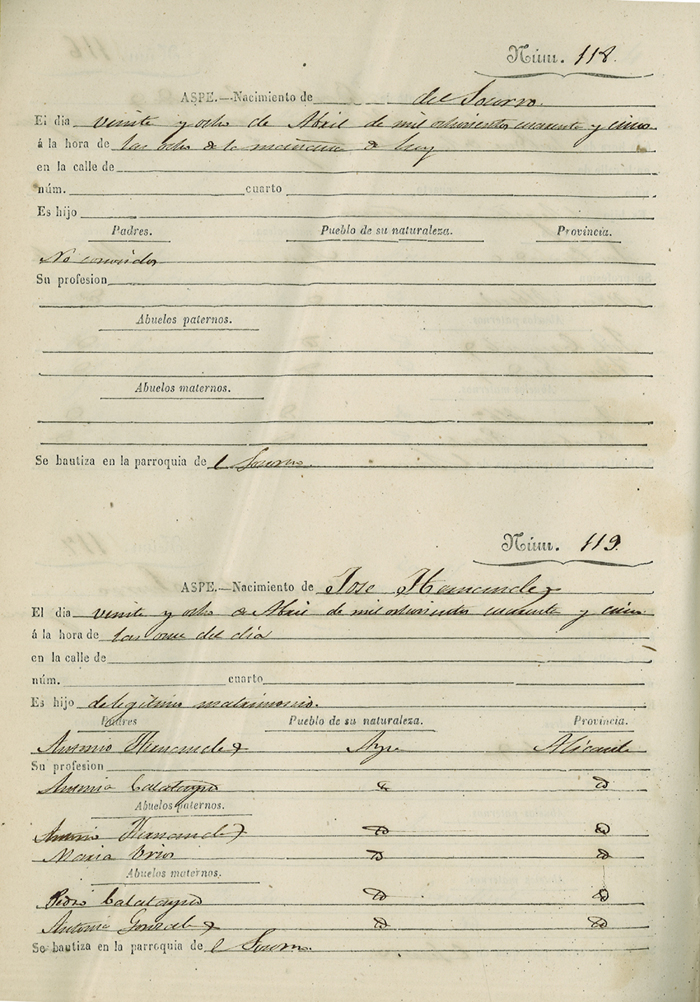 Núm. 118.
ASPE.—Nacimiento de del Socorro.
El dia veinte y ocho de Abril de mil ochocientos cuarenta y cinco
á la hora de las ocho de la mañana de hoy
en la calle de
núm. cuarto
Es hijo
Padres. Pueblo de su naturaleza. Provincia.
No conocidos
Su profesion
Abuelos paternos.
Abuelos maternos.
Se bautiza en la parroquia de l Socorro.
Núm. 119.
ASPE.—Nacimiento de Jose Hernandez
El dia veinte y ocho de Abril de mil ochocientos cuarenta y cinco
á la hora de las once del día
en la calle de
núm. cuarto
Es hijo de legitimo matrimonio.
Padres Pueblo de su naturaleza. Provincia.
Antonio Hernandez Aspe Alicante
Su profesion
Antonia Calatayud
Abuelos paternos.
Antonio Hernandez
Maria
Abuelos maternos.
Pedro Calatayud
Antonia Gonzalez
Se bautiza en la parroquia de l Socorro.